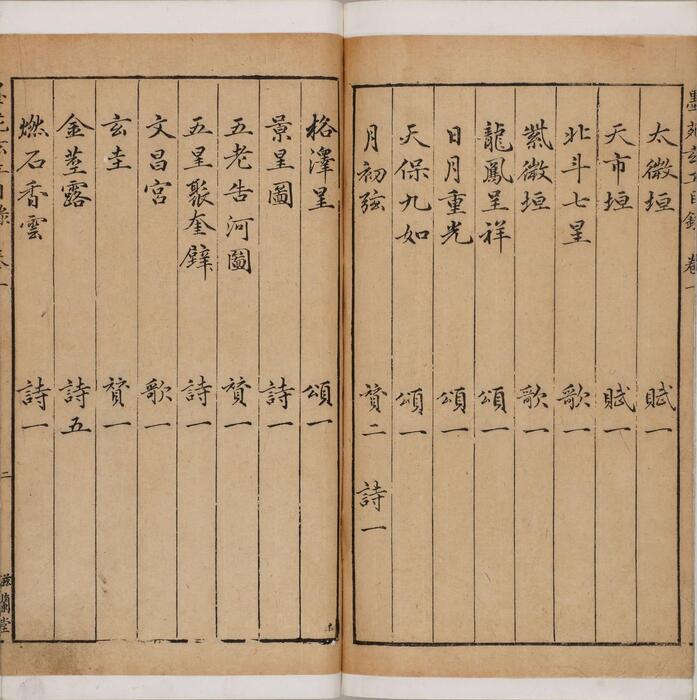 太微垣 賦一
天市垣 賦一
北斗七星 歌一
紫微垣 歌一
龍鳳呈祥 頌一
日月重光 頌一
天保九如 頌一
月初弦 贊二 詩一
格澤星 頌一
景星圖 詩一
五老告河圖 贊一
五星聚奎璧 詩一
文昌宮 歌一
玄圭 贊一
金莖露 詩五
燃石香雲 詩一
二